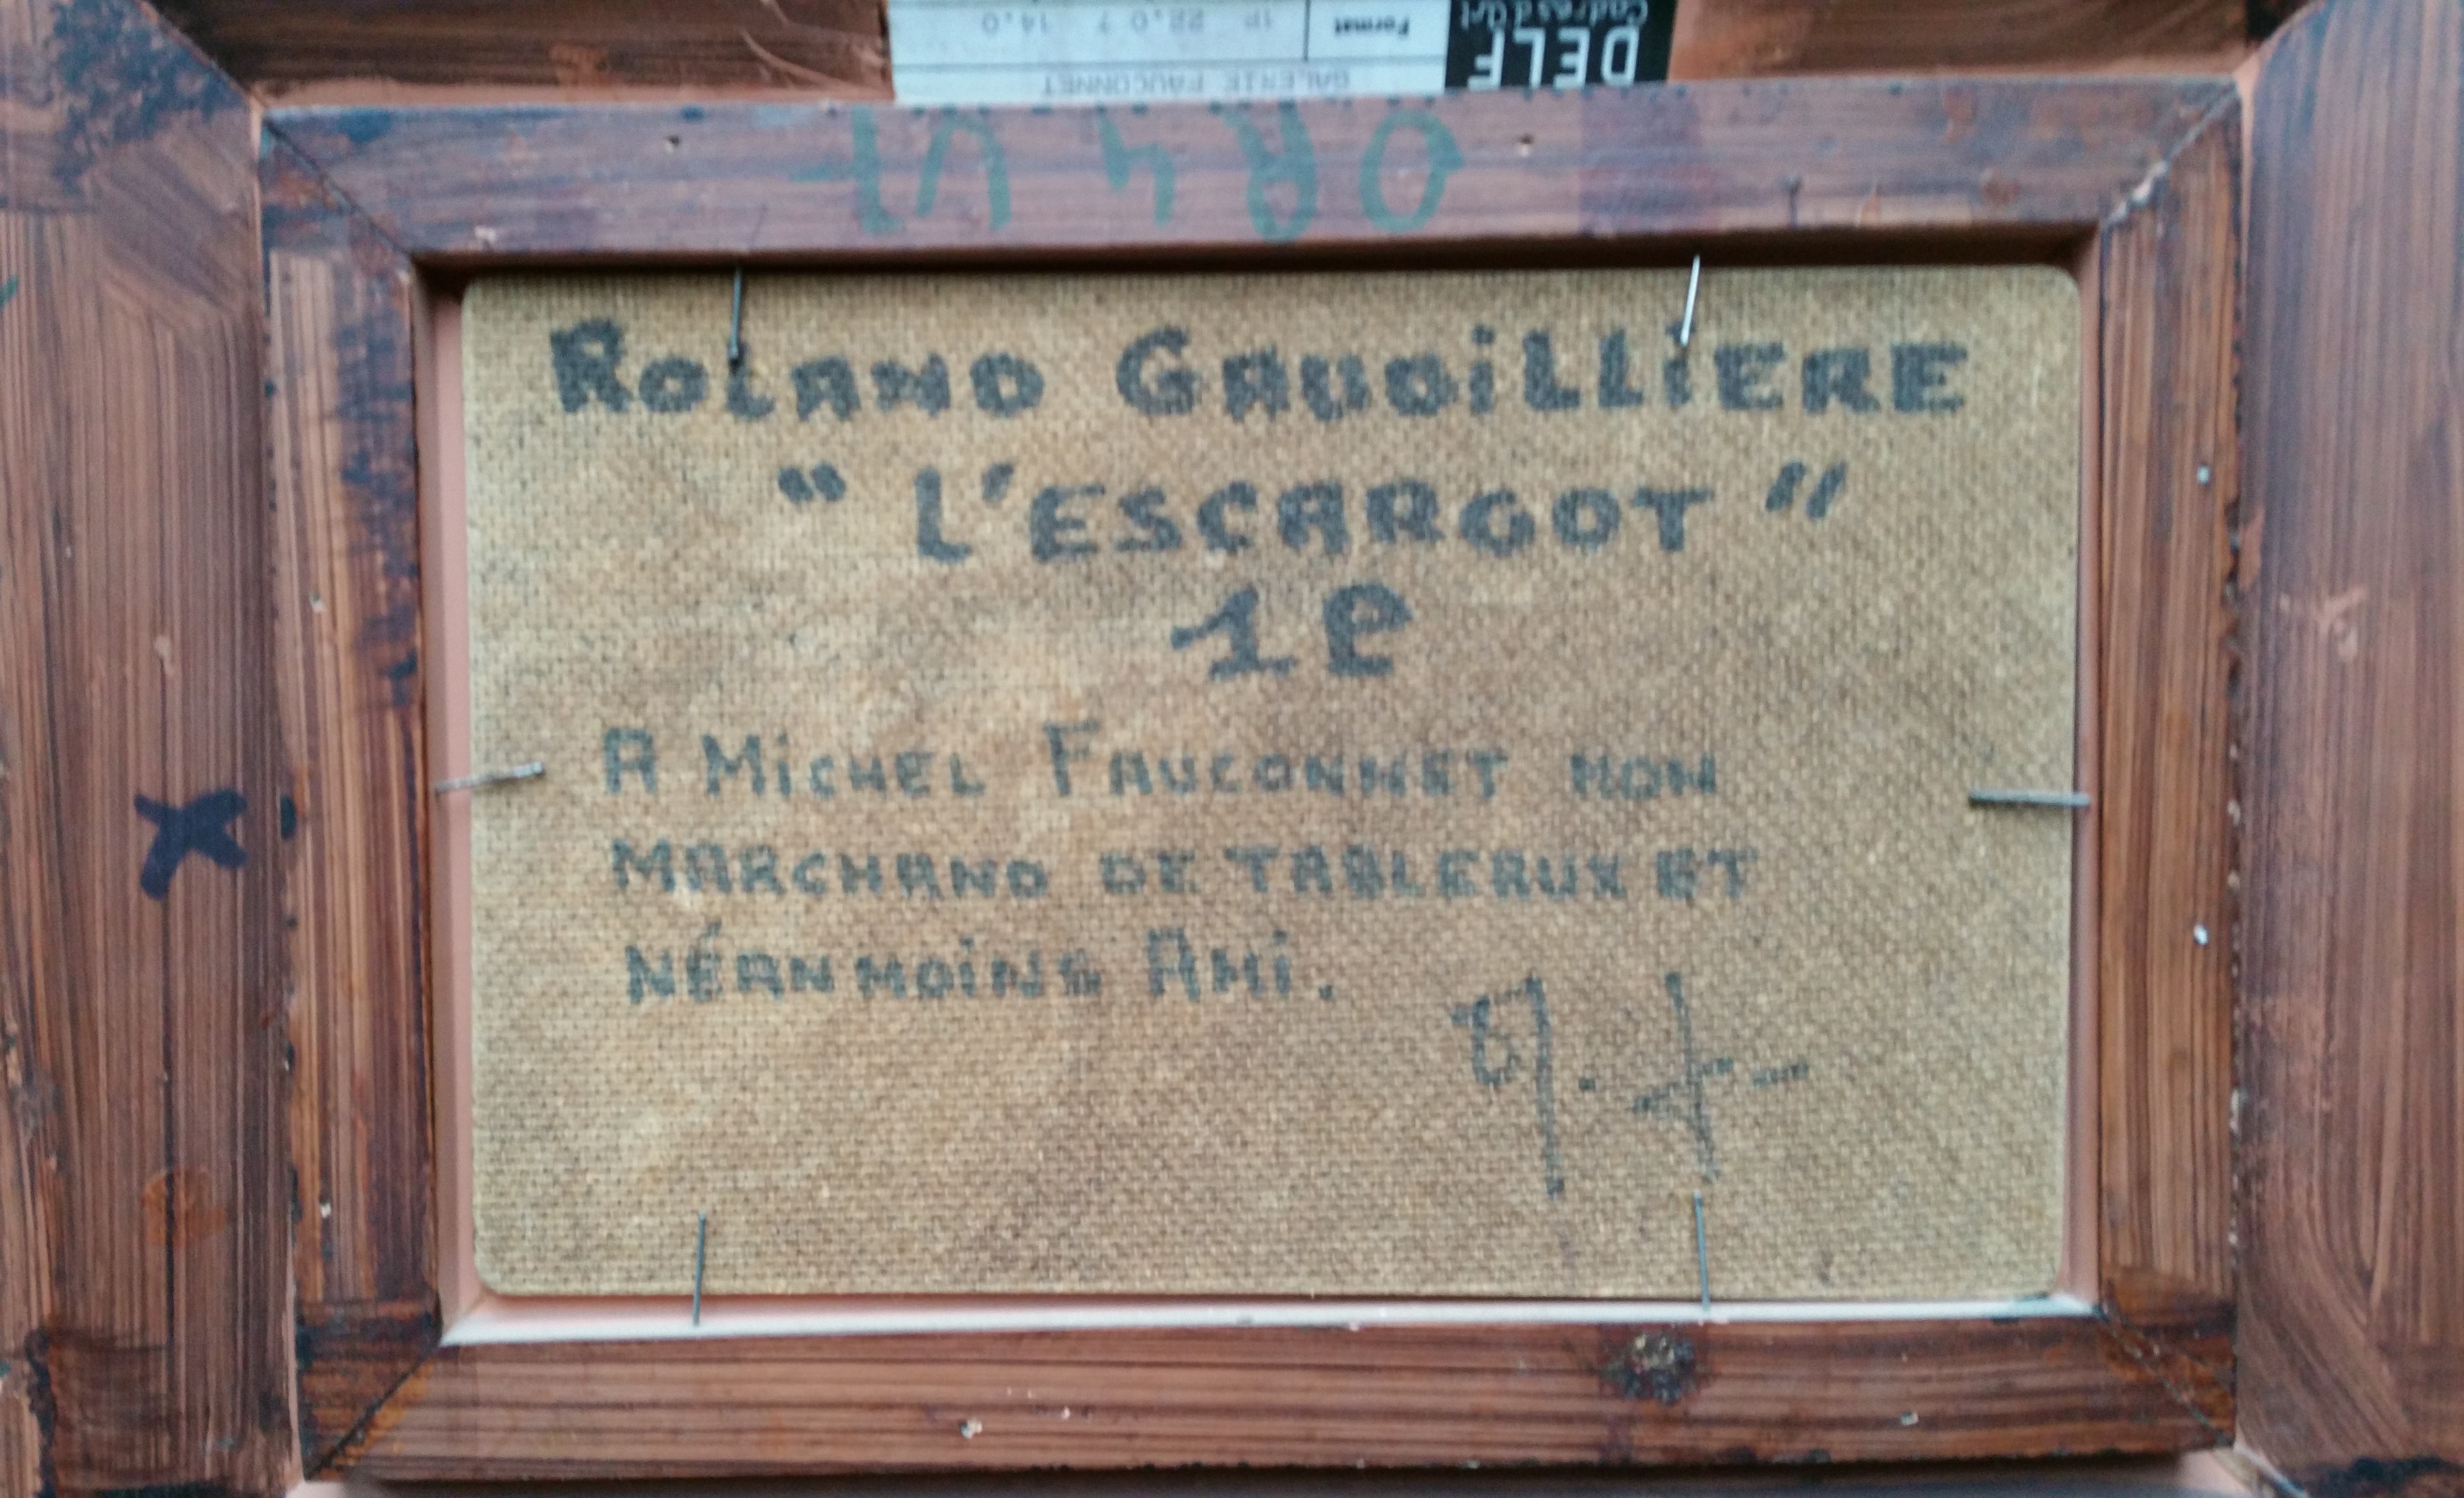 DELF
Cadres d'Art
Format 1P 22.0 ? 14.0
GALERIE FAUCONNET
ROLAND GAUDiLLiERE
“ L'ESCARGOT ”
1P
A MiCHEL FAUCONNET MON
MARCHAND DE TABLEAUX ET
NÉANMOiNS AMi.